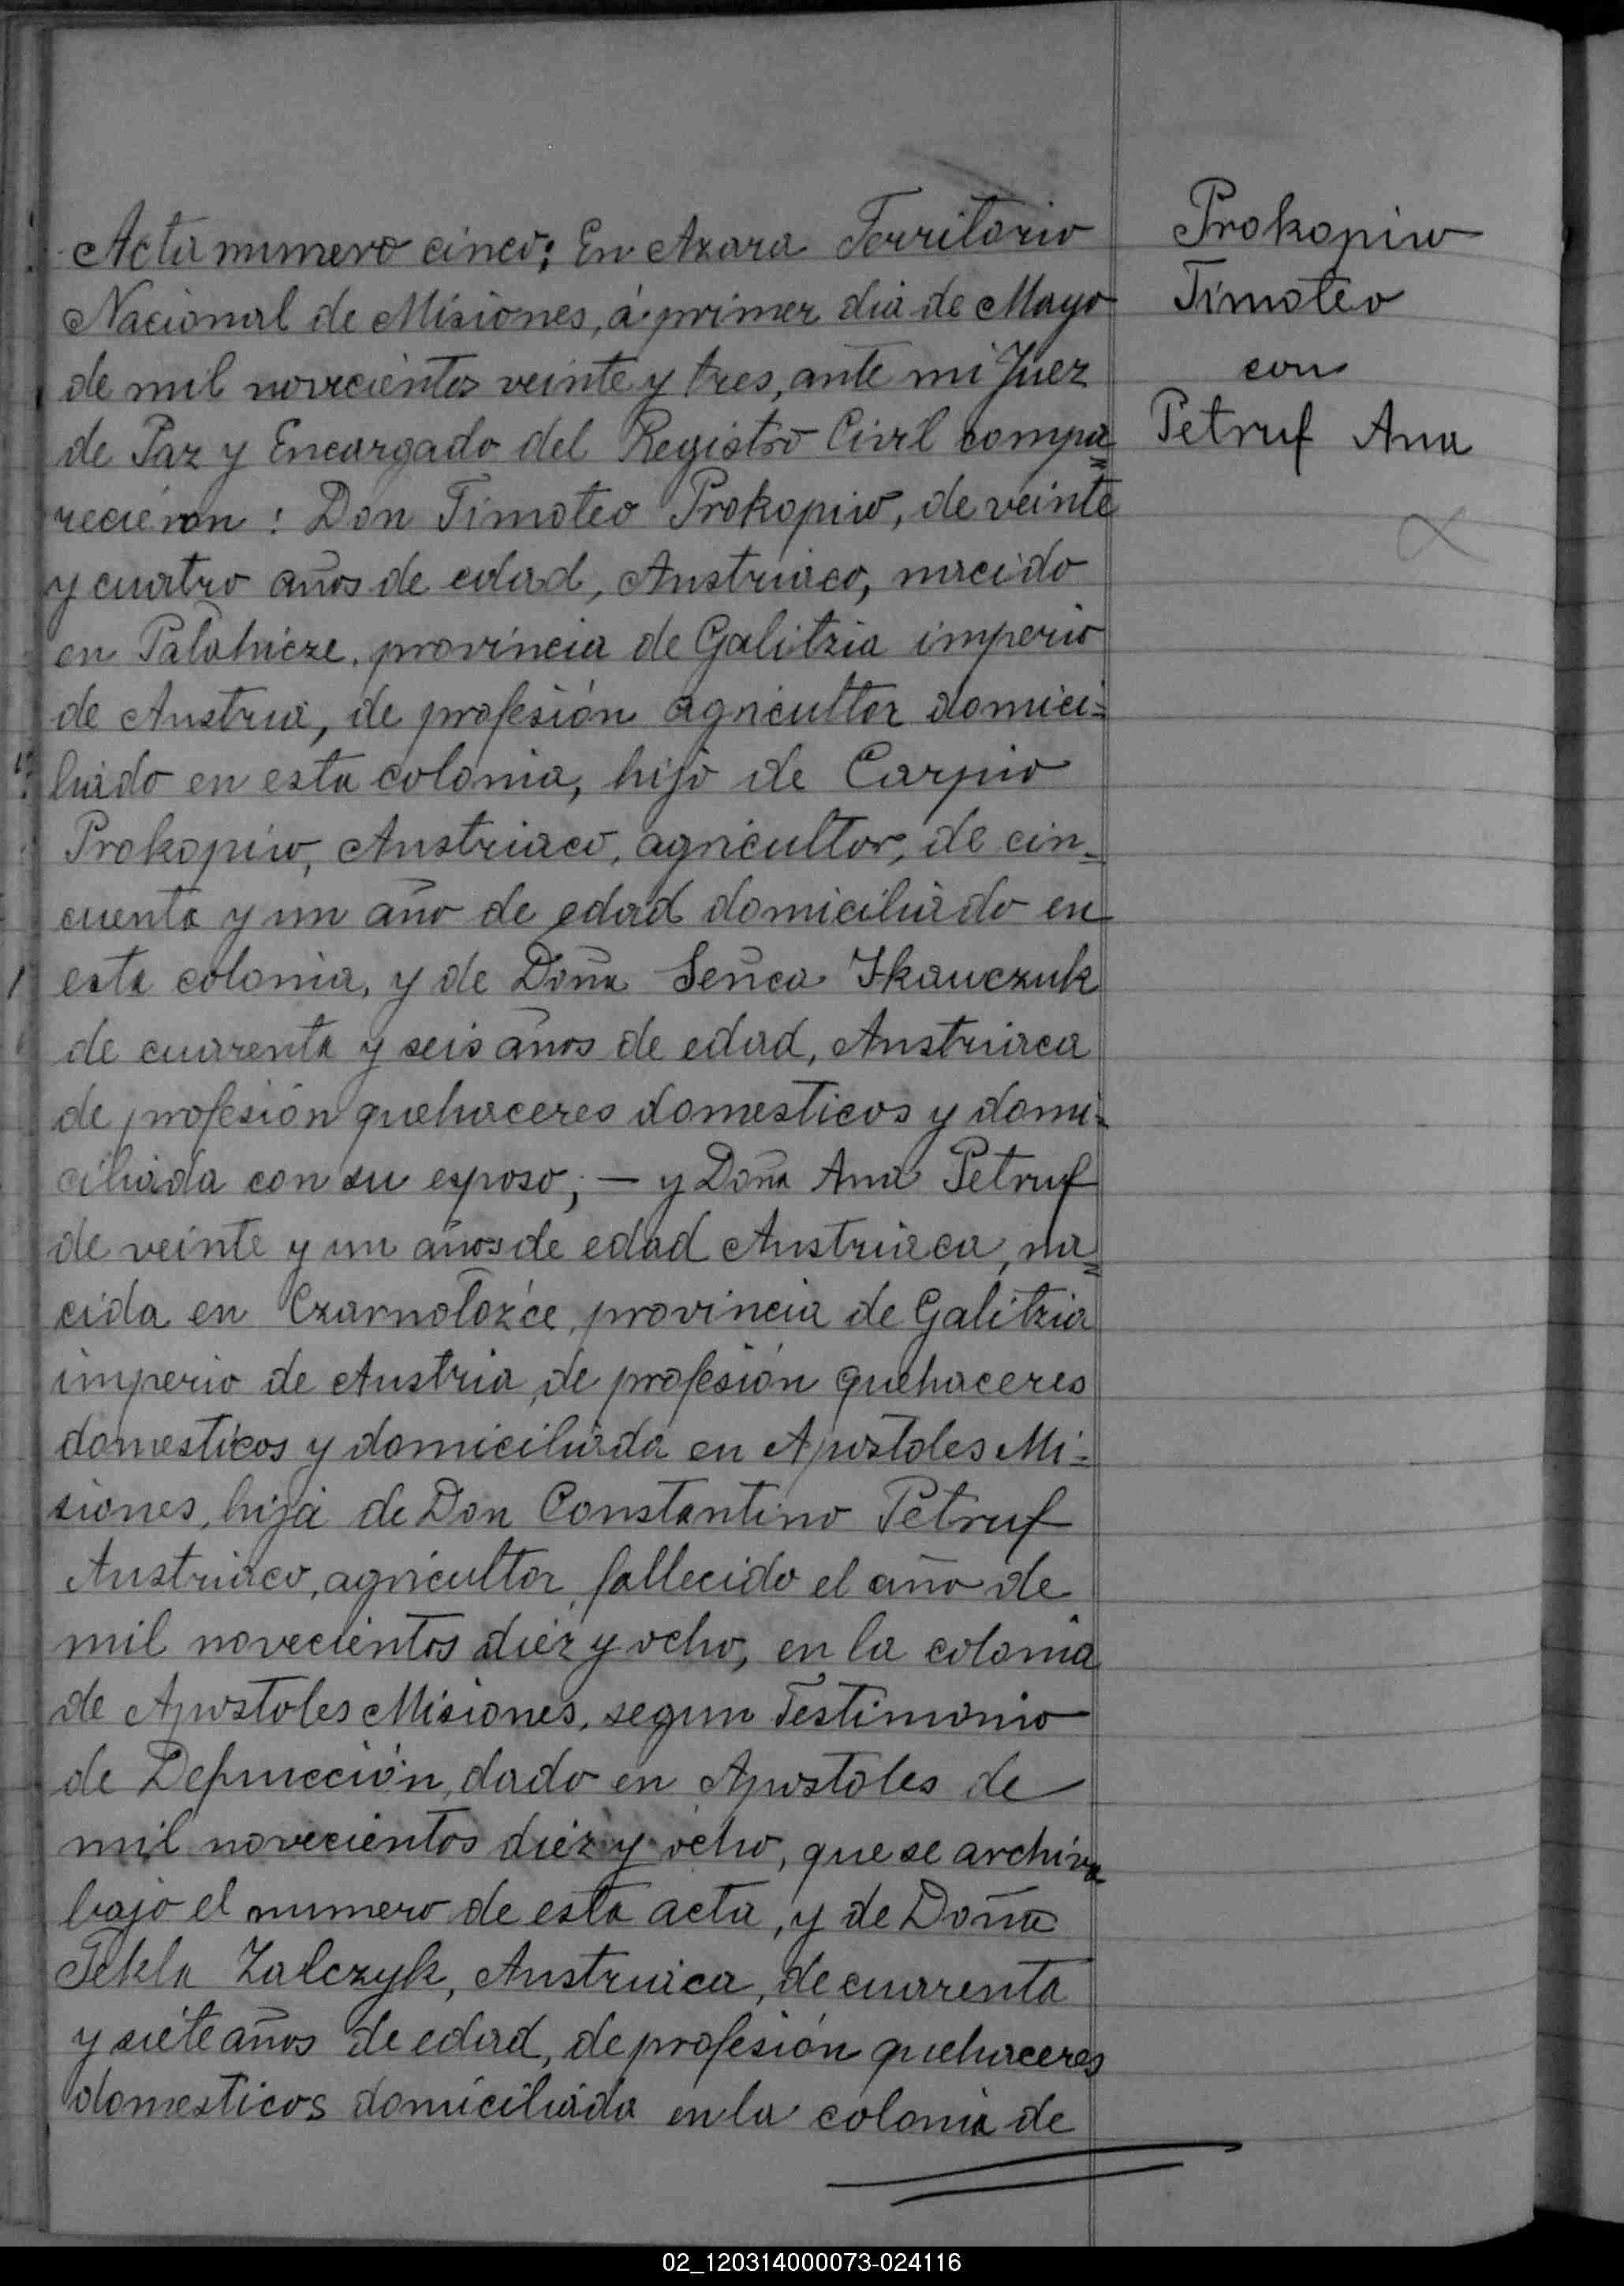 Acta numero cinco: En Azara Territorio
Nacional de Misiones, á primer dia de Mayo
de mil novecientos veinte y tres, ante mi Juez
de Paz y Encargado del Registro Civil compa=
recieron: Don Timoteo Prokopiw, de veinte
y cuatro años de edad, Austriaco, nacido
en Palahicze, provincia de Galitzia imperio
de Austria, de profesión agricultor domici=
liado en esta colonia, hijo de Carpio
Prokopiw, Austriaco, agricultor, de cin=
cuenta y un año de edad domiciliado en
esta colonia, y de Doña Seńca Tkauczuk
de cuarenta y seis años de edad, Austriaca
de profesión quehaceres domesticos y domi=
ciliada con su esposo; — y Doña Ana Petruf
de veinte y un años de edad Austriaca, na=
cida en Czarnołoźce, provincia de Galitzia
imperio de Austria, de profesión quehaceres
domesticos y domiciliada en Apostoles Mi=
siones, hija de Don Constantino Petruf
Austriaco, agricultor, fallecido el año de
mil novecientos diez y ocho, en la colonia
de Apostoles Misiones, segun Testimonio
de Defunccion, dado en Apostoles de
mil novecientos diez y ocho, que se archiva
bajo el numero de esta acta, y de Doña
Tekla Zalczyk, Austriaca, de cuarenta
y siete años de edad, de profesión quehaceres
domesticos domiciliada en la colonia de
Prokopiw
Timoteo
con
Petruf Ana
02_120314000073-024116